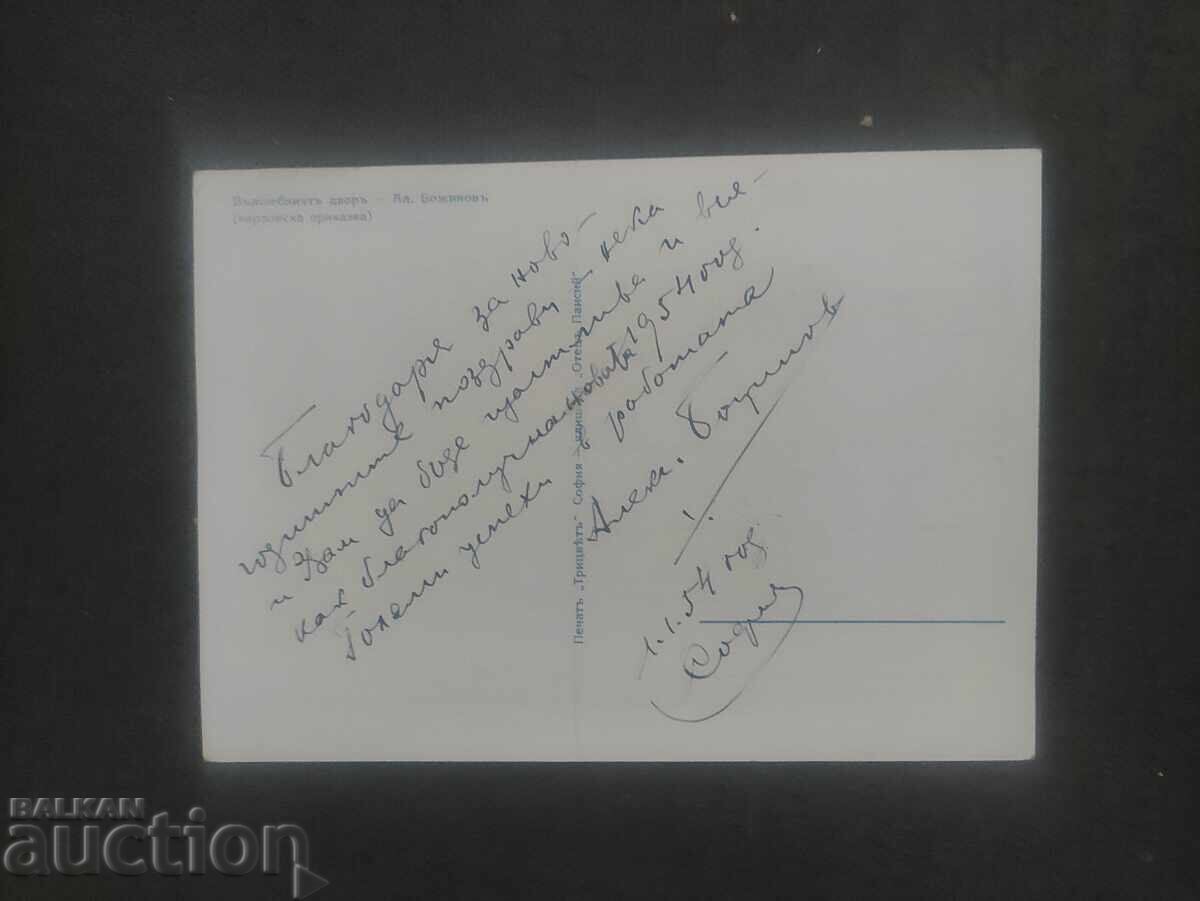 Вълшебниятъ дворъ - Ал. Божиновъ
(народна приказка)
Благодаря за ново-
годишните поздрави нека
и Вам да бъде щастлива и вся-
как благополучна новата 1954 год.
Големи успехи в работата
Алекс. Божинов
1.1.54 год.
София
Печатъ „Трицвѣтъ“ София
„Отецъ Паисий“
BALKAN
auction